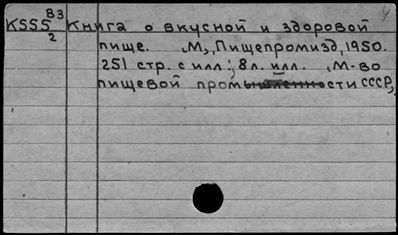 83
K555 Книга о вкусной и здоровой
2
пище. М., Пищепромизд, 1950.
251 стр. с илл.; 8 л. илл. М-во
пищевой промышленности СССР,